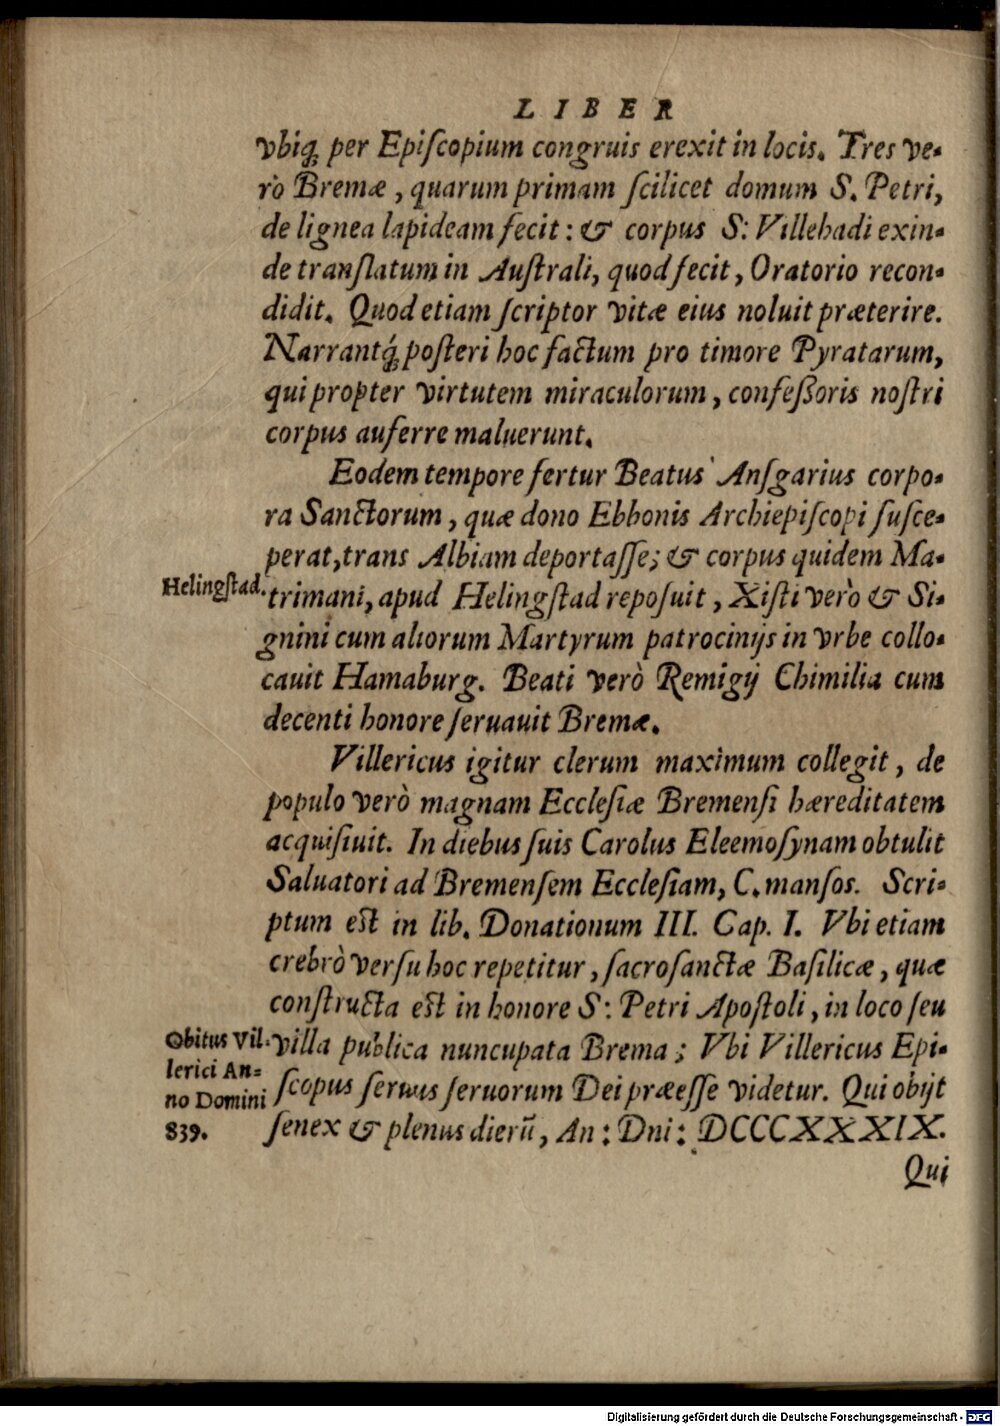 LIBER
vbiq́; per Epiſcopium congruis erexit in locis. Tres ve-
rò Bremæ, quarum primam ſcilicet domum S. Petri,
de lignea lapideam fecit: & corpus S: Villehadi exin-
de tranſlatum in Auſtrali, quod fecit, Oratorio recon-
didit. Quod etiam ſcriptor vitæ eius noluit præterire.
Narrantq́; poſteri hoc factum pro timore Pyratarum,
qui propter virtutem miraculorum, confeſſoris noſtri
corpus auferre maluerunt.
Eodem tempore fertur Beatus Anſgarius corpo-
ra Sanctorum, quæ dono Ebbonis Archiepiſcopi ſuſce-
perat, trans Albiam deportaſſe; & corpus quidem Ma-
Helingſtad.
trimani, apud Helingſtad repoſuit, Xiſti verò & Si-
gnini cum aliorum Martyrum patrocinijs in vrbe collo-
cauit Hamaburg. Beati verò Remigij Chimilia cum
decenti honore ſeruauit Bremæ.
Villericus igitur clerum maximum collegit, de
populo verò magnam Eccleſiæ Bremenſi hæreditatem
acquiſiuit. In diebus ſuis Carolus Eleemoſynam obtulit
Saluatori ad Bremenſem Eccleſiam, C. manſos. Scri-
ptum est in lib. Donationum III. Cap. I. Vbi etiam
crebrò verſu hoc repetitur, ſacroſanctæ Baſilicæ, quæ
conſtructa est in honore S: Petri Apoſtoli, in loco ſeu
villa publica nuncupata Brema; Vbi Villericus Epi-
ſcopus ſeruus ſeruorum Dei præeſſe videtur. Qui obijt
ſenex & plenus dierū, An: Dni: DCCCXXXIX.
Obitus Vil-
lerici An-
no Domini
839.
Qui
Digitalisierung gefördert durch die Deutsche Forschungsgemeinschaft - DFG